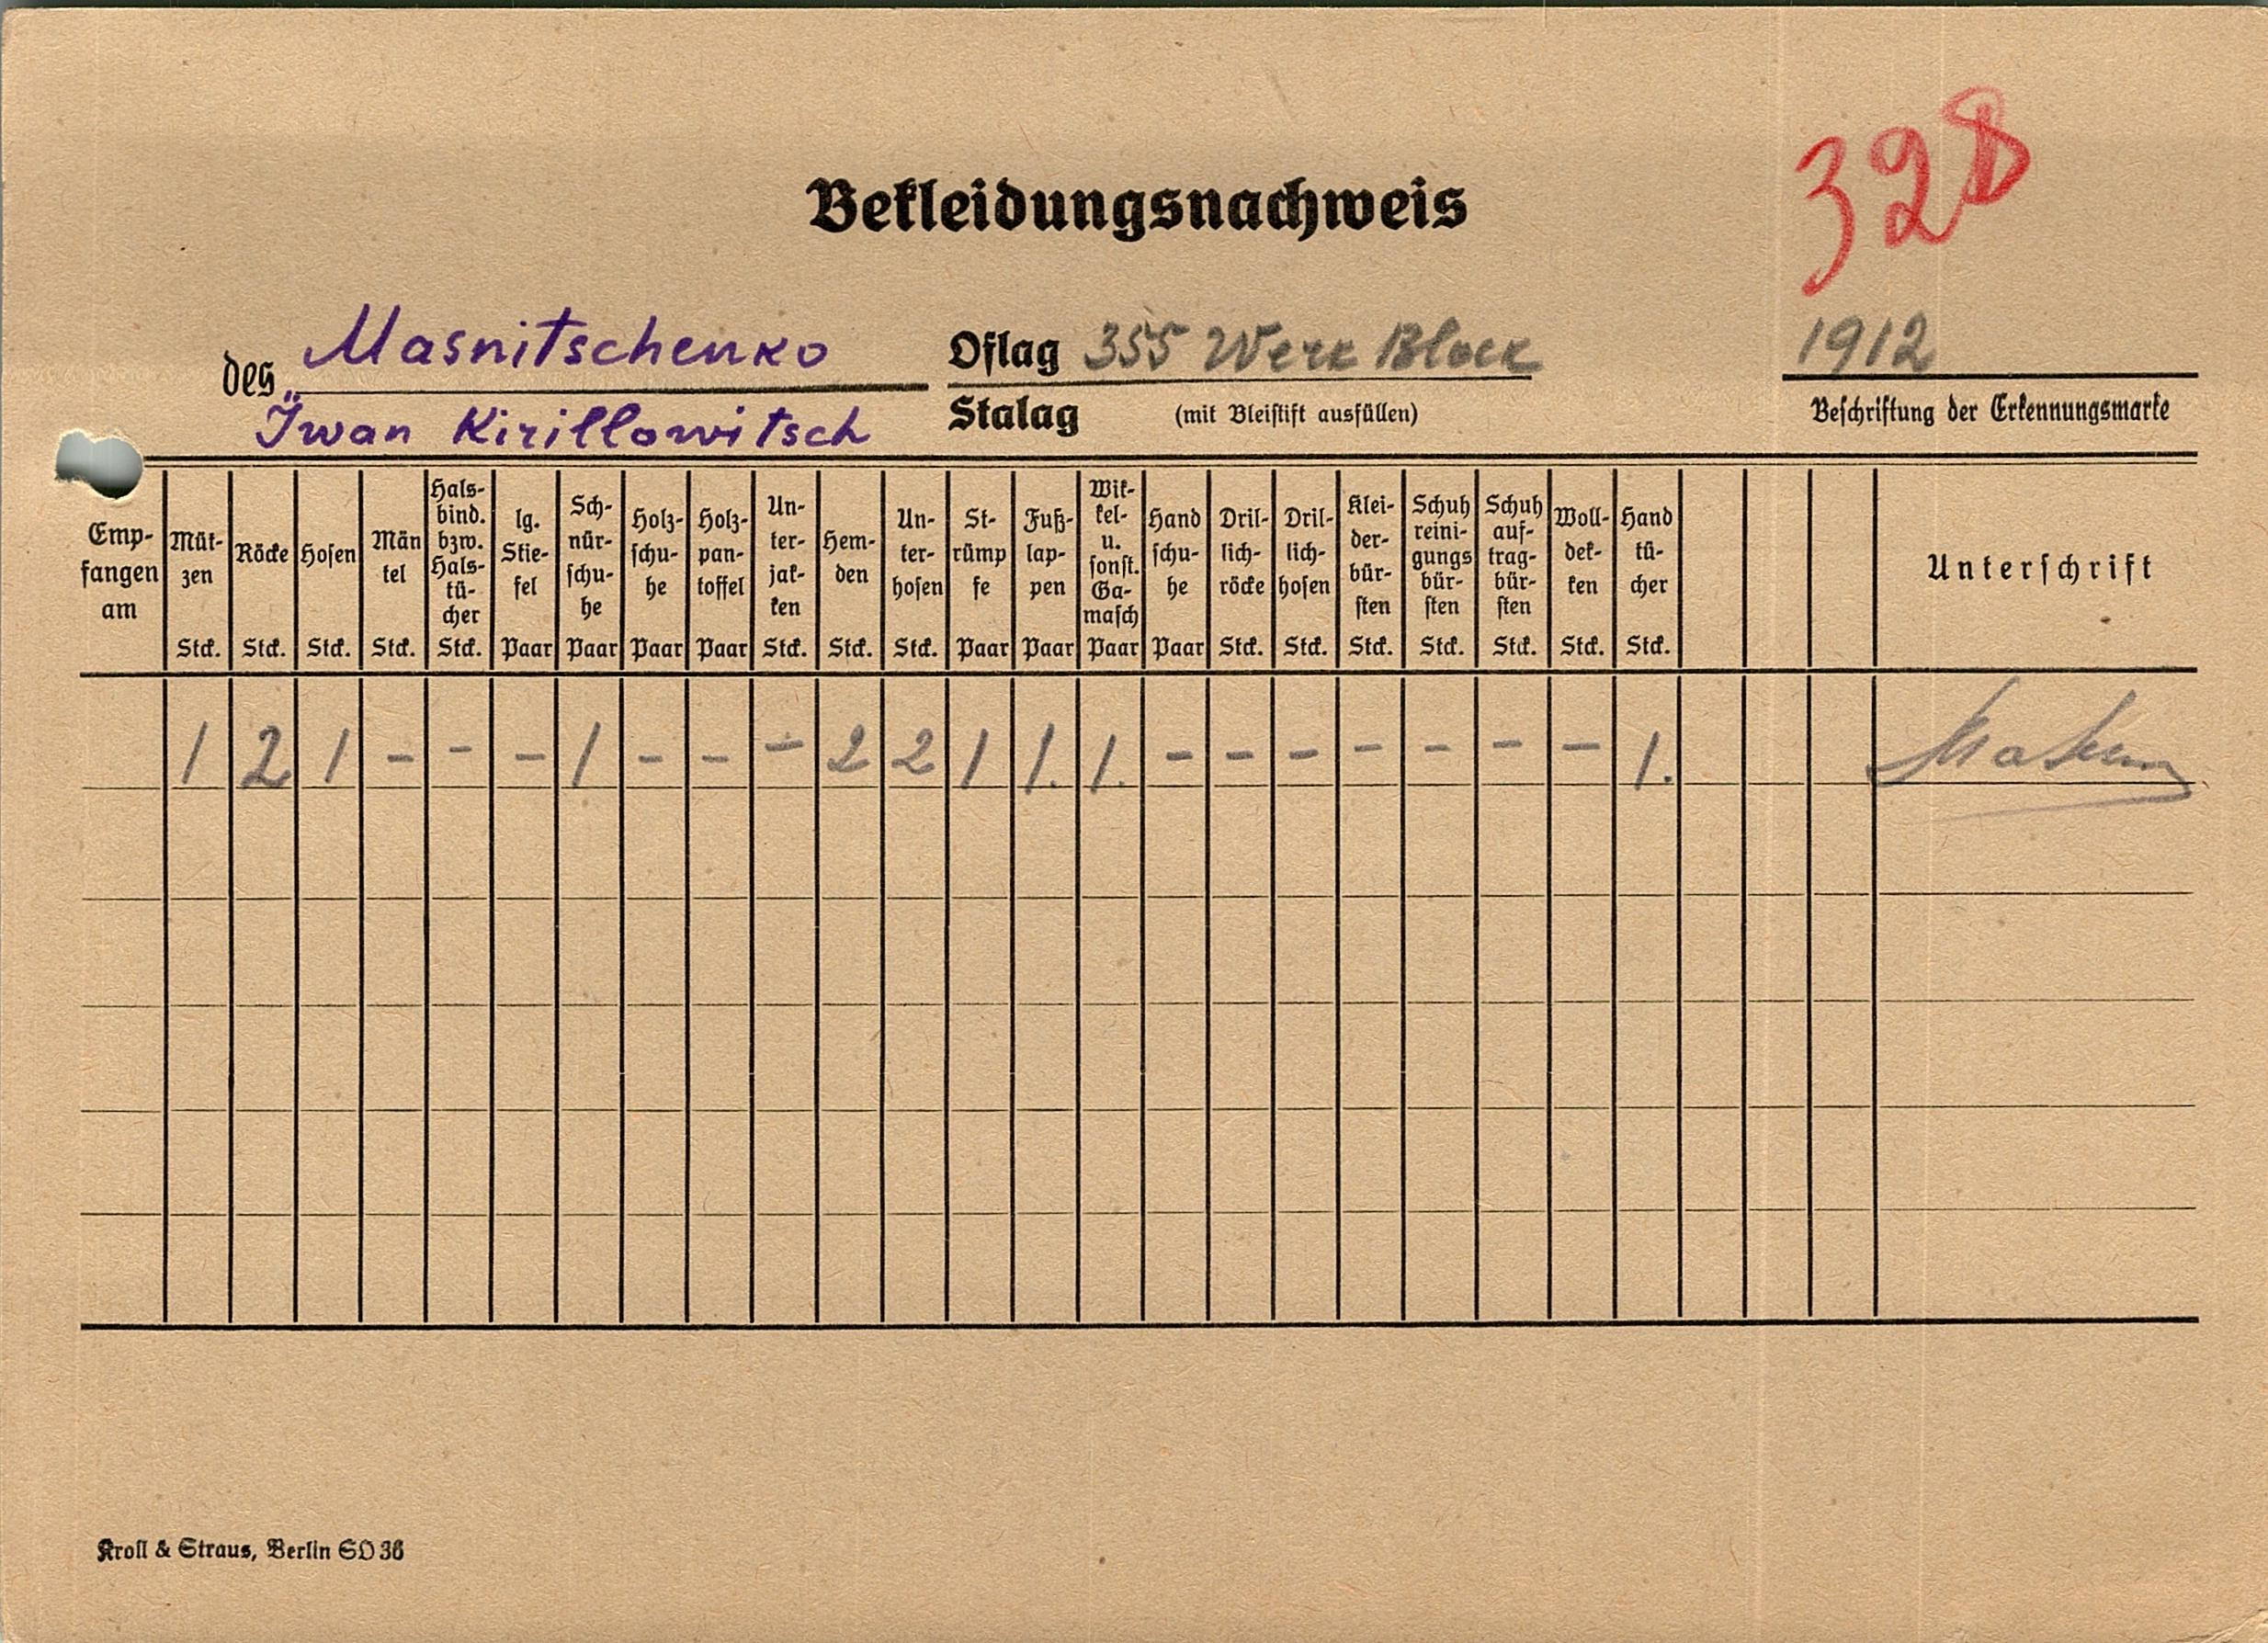 328
Bekleidungsnachweis
des Masnitschenko
Iwan Kirillowitsch
Oflag 355 Werk Block
Stalag (mit Bleistift ausfüllen)
1912
Beschriftung der Erkennungsmarke
Emp-
fangen
am
Müt-
zen
Stck.
Röcke
Stck.
Hosen
Stck.
Män
tel
Stck.
Hals-
bind.
bzw.
Hals-
tü-
cher
Stck.
lg.
Stie-
fel
Paar
Sch-
nür-
schu-
he
Paar
Holz-
schu-
he
Paar
Holz-
pan-
toffel
Paar
Un-
ter-
jak-
ken
Stck.
Hem-
den
Stck.
Un-
ter-
hosen
Stck.
St-
rümp
fe
Paar
Fuß-
lap-
pen
Paar
Wik-
kel-
u.
sonst.
Ga-
masch
Paar
Hand
schu-
he
Paar
Dril-
lich-
röcke
Stck.
Dril-
lich-
hosen
Stck.
Klei-
der-
bür-
sten
Stck.
Schuh
reini-
gungs
bür-
sten
Stck.
Schuh
auf-
trag-
bür-
sten
Stck.
Woll-
dek-
ken
Stck.
Hand
tü-
cher
Stck.
Unterschrift
1 2 1 - - - 1 - - - 2 2 1 1. 1. - - - - - - - 1.
Kroll & Straus, Berlin SO 36